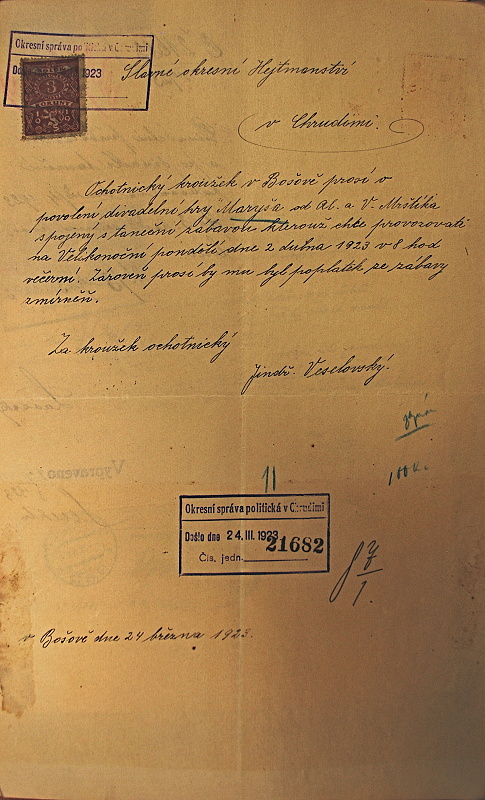 Okresní správa politická v Chrudimi
1923
3
KORUNY
Slavné okresní Hejtmanství
v Chrudimi.
Ochotnický kroužek v Bošově prosí o
povolení divadelní hry "Maryša od Al. a V. Mrštíka
spojený s taneční zábavou kterouž chce provozovati
na Velikonoční pondělí dne 2 dubna 1923 v 8 hod
večerní. Zároveň prosí by mu byl poplatek ze zábavy
zmírněn.
Za kroužek ochotnický
Jindř. Veselovský.
100 Kč
11
Okresní správa politická v Chrudimi
Došlo dne 24. III. 1923
Čís. jedn. 21682
v Bošově dne 24 března 1923.
Vypraveno: